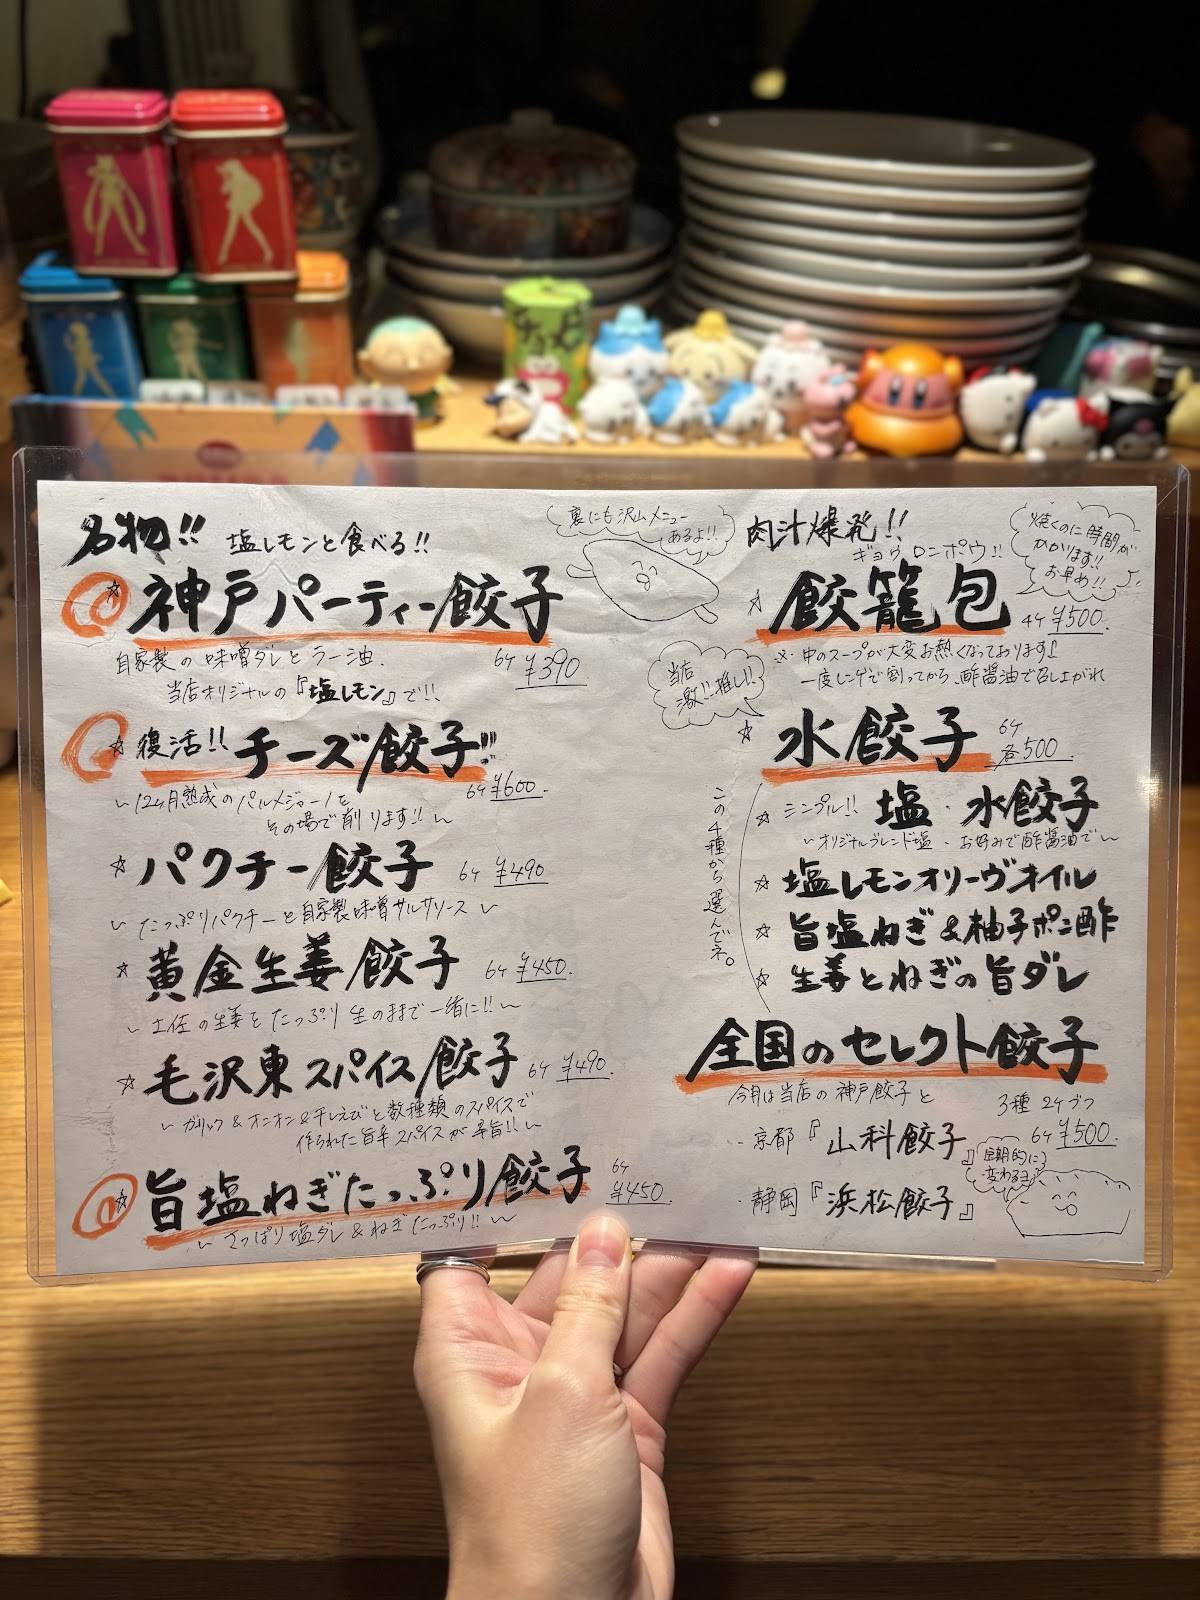 名物!! 塩レモンと食べる!!
神戸パーティー餃子
6ケ ¥390
自家製の味噌ダレとラー油.
当店オリジナルの『塩レモン』で!!
復活!! チーズ餃子!!!
6ケ ¥600.
〜12ヶ月熟成のパルメジャーノを
その場で削ります!!〜
パクチー餃子 6ケ ¥490
〜たっぷりパクチーと自家製味噌サルサソース〜
黄金生姜餃子 6ケ ¥450.
〜土佐の生姜をたっぷり生のままで一緒に!!〜
毛沢東スパイス餃子 6ケ ¥490.
〜ガーリック&オニオン&干しえびと数種類のスパイスで
作られた旨辛スパイスが辛旨!!〜
旨塩ねぎたっぷり餃子 6ケ ¥450.
〜さっぱり塩ダレ&ねぎたっぷり!!〜
裏にも沢山メニュー
あるよ!!
肉汁爆発!!
ギョウ ロンポウ!!
餃籠包 4ケ ¥500.
焼くのに時間が
かかります!!
お早め!!
※中のスープが大変お熱くなっております!
一度レンゲで割ってから、酢醤油で召し上がれ
当店
激!!推し!!
水餃子 6ケ
各500
この4種から選んでネ。
シンプル!! 塩・水餃子
〜オリジナルブレンド塩・お好みで酢醤油で〜
塩レモンオリーヴオイル
旨塩ねぎ&柚子ポン酢
生姜とねぎの旨ダレ
全国のセレクト餃子
今月は当店の神戸餃子と 3種 2ケヅツ
6ケ ¥500.
京都『山科餃子』
定期的に
変わるヨ
静岡『浜松餃子』